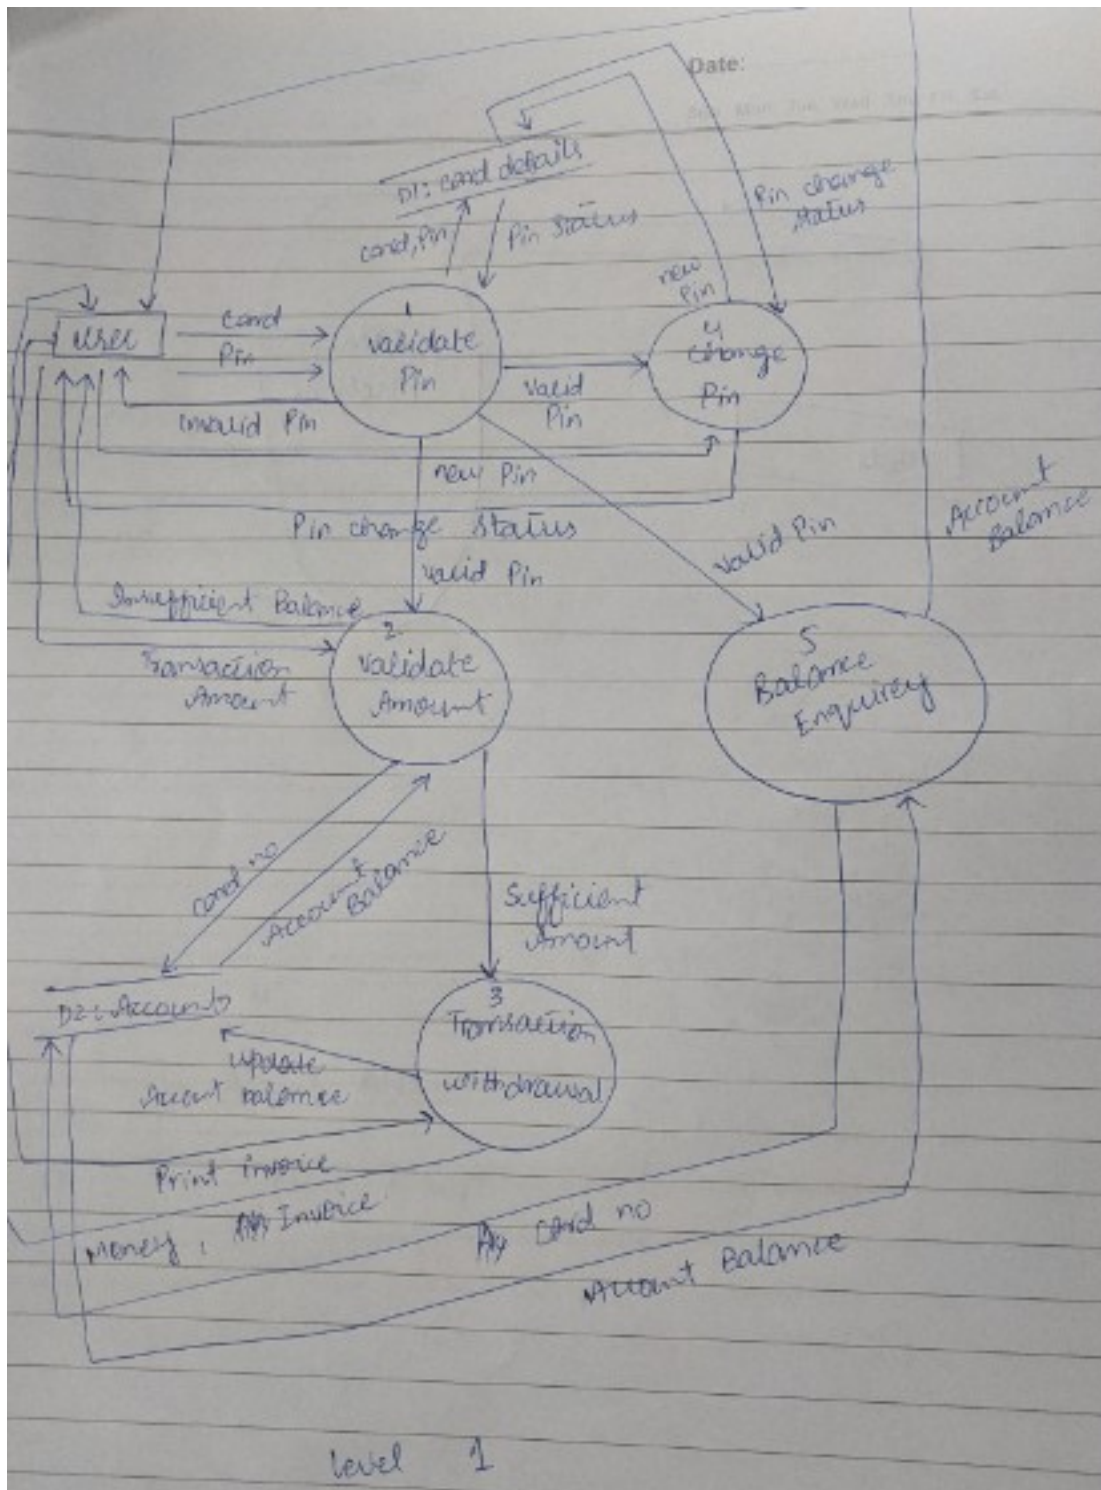 Date:
D1: card details
Pin change
status
card, Pin
Pin Status
new
Pin
user
Card
Pin
1
validate
Pin
4
change
Pin
valid
Pin
invalid Pin
new Pin
Pin change status
valid Pin
valid Pin
Account
Balance
Insufficient Balance
Transaction
Amount
2
validate
Amount
5
Balance
Enquirey
card no
Account
Balance
Sufficient
Amount
D2: Accounts
3
Transaction
withdrawal
update
Account balance
Print invoice
Money, Invoice
Card no
Account Balance
Level 1